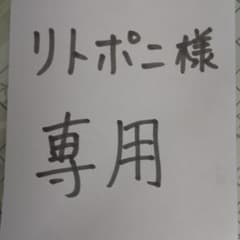 リトポニ様
専用